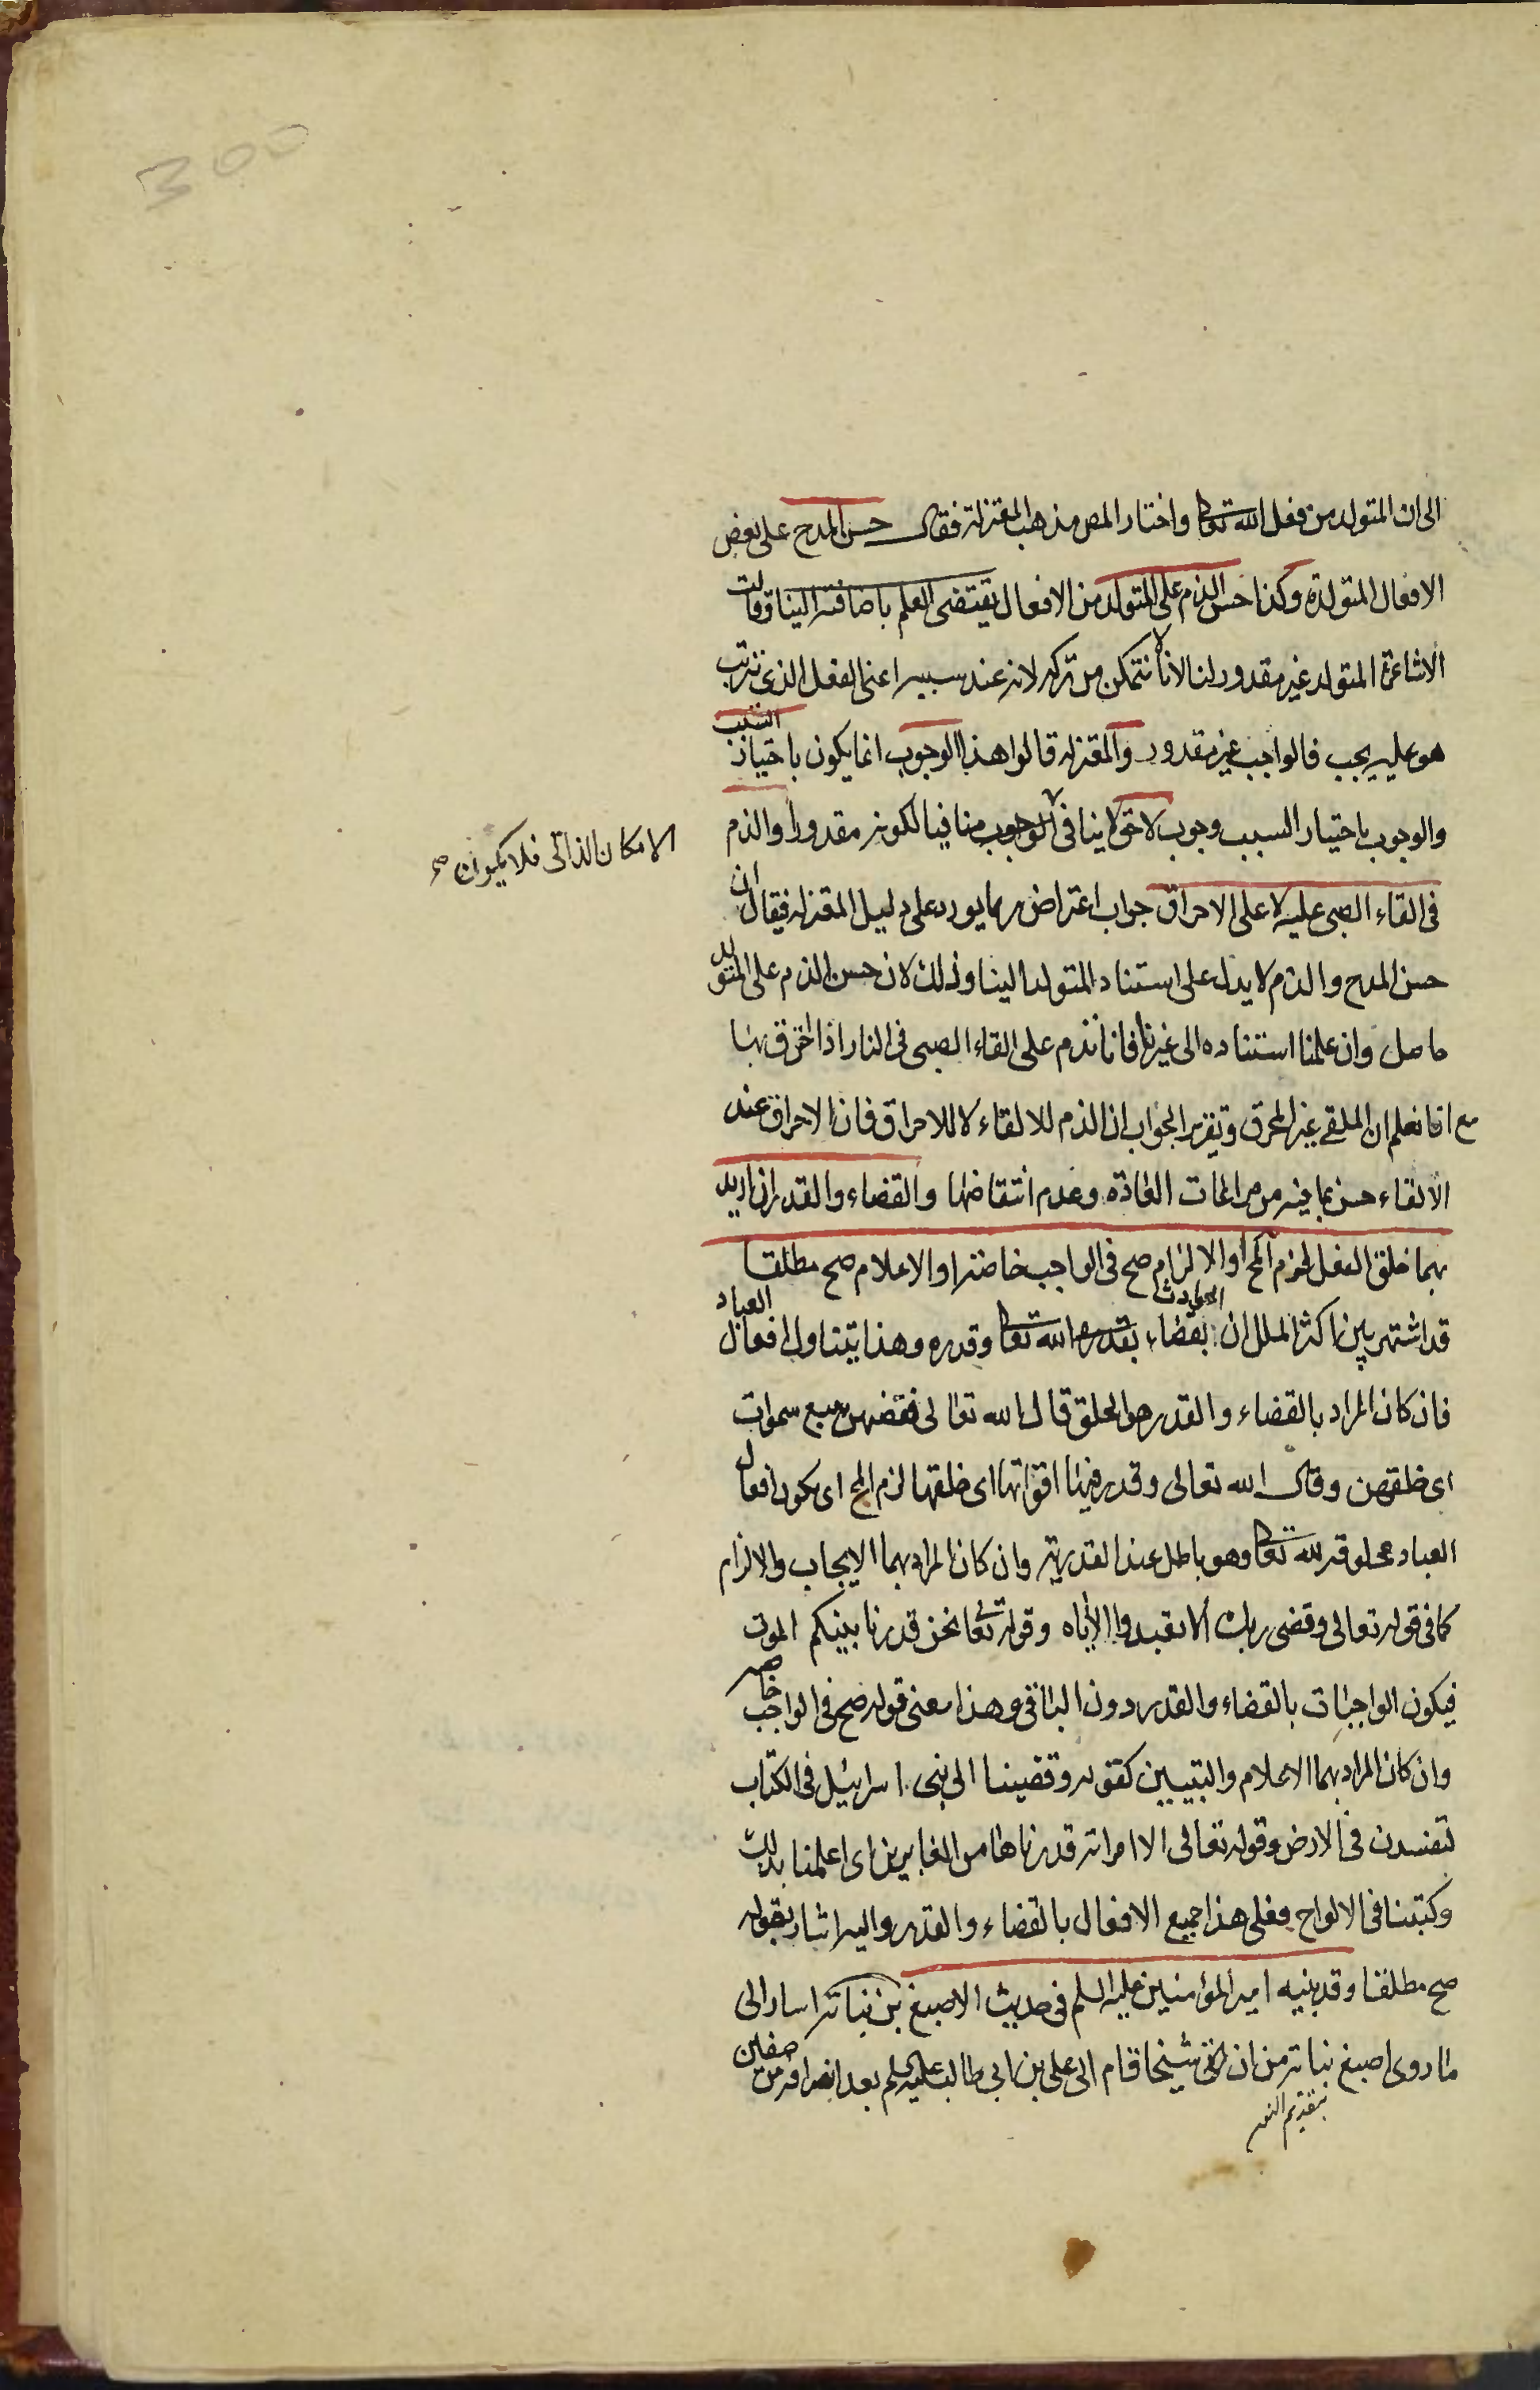 300
الى ان المتولد من فعل الله تعا واختار المص مذهب المعتزلة فقال حسن المدح على بعض
الافعال المتولدة وكذا حسن الذم على المتولد من الافعال يقتضى العلم باضافته الينا وقالت
الاشاعرة المتولد غير مقدور لنا لانا لا نتمكن من تركه لانه عند سببه اعنى الفعل الذى ترتب
هو عليه يجب فالواجب غير مقدور والمعتزلة قالوا هذا الوجوب انما يكون باختيار السبب
والوجوب باختيار السبب وجوب لاحق لا ينافى الوجوب منافيا لكونه مقدورا والذم
الامكان الذاتى فلا يكون صح
فى القاء الصبى عليه لا على الاحراق جواب اعتراض ربما يورد على دليل المعتزلة فيقال ان
حسن المدح والذم لا يدل على استناد المتولد الينا وذلك لان حسن الذم على المتولد
حاصل وان علمنا استناده الى غيرنا فانا نذم على القاء الصبى فى النار اذا احترق بها
مع انا نعلم ان الملقى غير المحرق وتقرير الجواب ان الذم للالقاء لا للاحراق فان الاحراق عند
الالقاء حسن بما فيه من مراعات العادة وعدم انتقاضها والقضاء والقدر ان اريد
بهما خلق الفعل لزم المح او الالزام صح فى الواجب خاصة او الاعلام صح مطلقا
قد اشتهر بين اكثر الملل ان الحوادث بقضاء بقدره الله تعا وقدره وهذا يتناول افعال العباد
فان كان المراد بالقضاء والقدر هو الخلق قال الله تعالى فقضيهن سبع سموات
اى خلقهن وقال الله تعالى وقدر فيها اقواتها اى خلقها لزم المح اى يكون افعال
العباد مخلوقة لله تعا وهو باطل عند القدرية وان كان المراد بهما الايجاب والالزام
كما فى قوله تعالى وقضى ربك الا تعبدوا الا اياه وقوله تعا نحن قدرنا بينكم الموت
فيكون الواجبات بالقضاء والقدر دون الباقى وهذا معنى قوله صح فى الواجب خاصة
وان كان المراد بهما الاعلام والتبيين كقوله وقضينا الى بنى اسرائيل فى الكتاب
لتفسدن فى الارض وقوله تعالى الا امراته قدرناها من الغابرين اى اعلمنا بذلك
وكتبنا فى الالواح فعلى هذا جميع الافعال بالقضاء والقدر واليه اشار بقوله
صح مطلقا وقد بينه امير المؤمنين عليه السلم فى حديث الاصبغ بن نباتة اشار الى
ما روى اصبغ نباتة من ان شيخا قام الى على بن ابى طالب عليه السلم بعد انصرافه من صفين
بتقديم النون